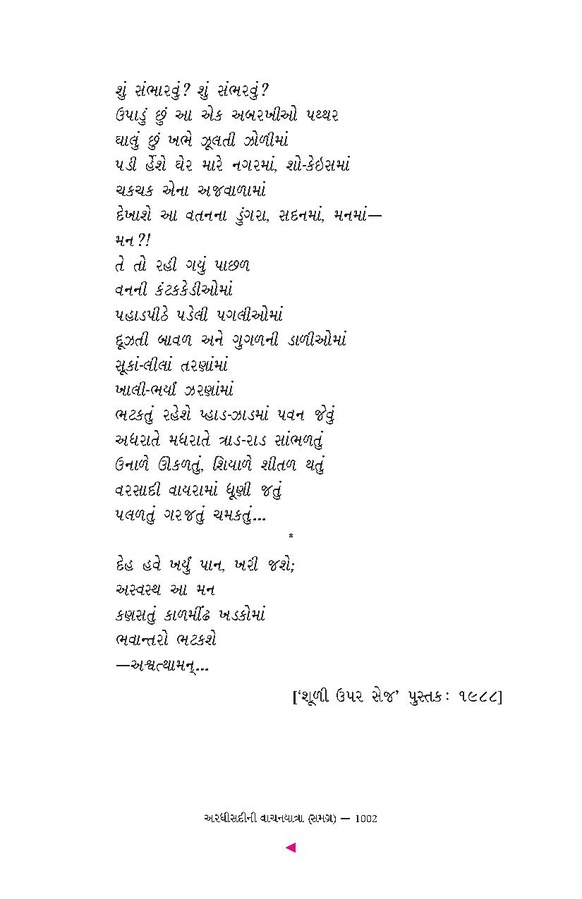 શું સંભારવું? શું સંભરવું?
ઉપાડું છું આ એક અબરખીઓ પથ્થર
ઘાલું છું ખભે ઝૂલતી ઝોળીમાં
પડી ર્હેશે ઘેર મારે નગરમાં, શો-કેઇસમાં
ચકચક એના અજવાળામાં
દેખાશે આ વતનના ડુંગરા, સદનમાં, મનમાં—
મન?!
તે તો રહી ગયું પાછળ
વનની કંટકકેડીઓમાં
પહાડપીઠે પડેલી પગલીઓમાં
દૂઝતી બાવળ અને ગુગળની ડાળીઓમાં
સૂકાં-લીલાં તરણાંમાં
ખાલી-ભર્યાં ઝરણાંમાં
ભટકતું રહેશે પ્હાડ-ઝાડમાં પવન જેવું
અધરાતે મધરાતે ત્રાડ-રાડ સાંભળતું
ઉનાળે ઊકળતું, શિયાળે શીતળ થતું
વરસાદી વાયરામાં ધૂણી જતું
પલળતું ગરજતું ચમકતું...
*
દેહ હવે ખર્યું પાન, ખરી જશે;
અસ્વસ્થ આ મન
કણસતું કાળમીંઢ ખડકોમાં
ભવાન્તરો ભટકશે
—અશ્વત્થામન્...
[‘શૂળી ઉપર સેજ’ પુસ્તક: ૧૯૮૮]
અરધીસદીની વાચનયાત્રા (સમગ્ર) — 1002